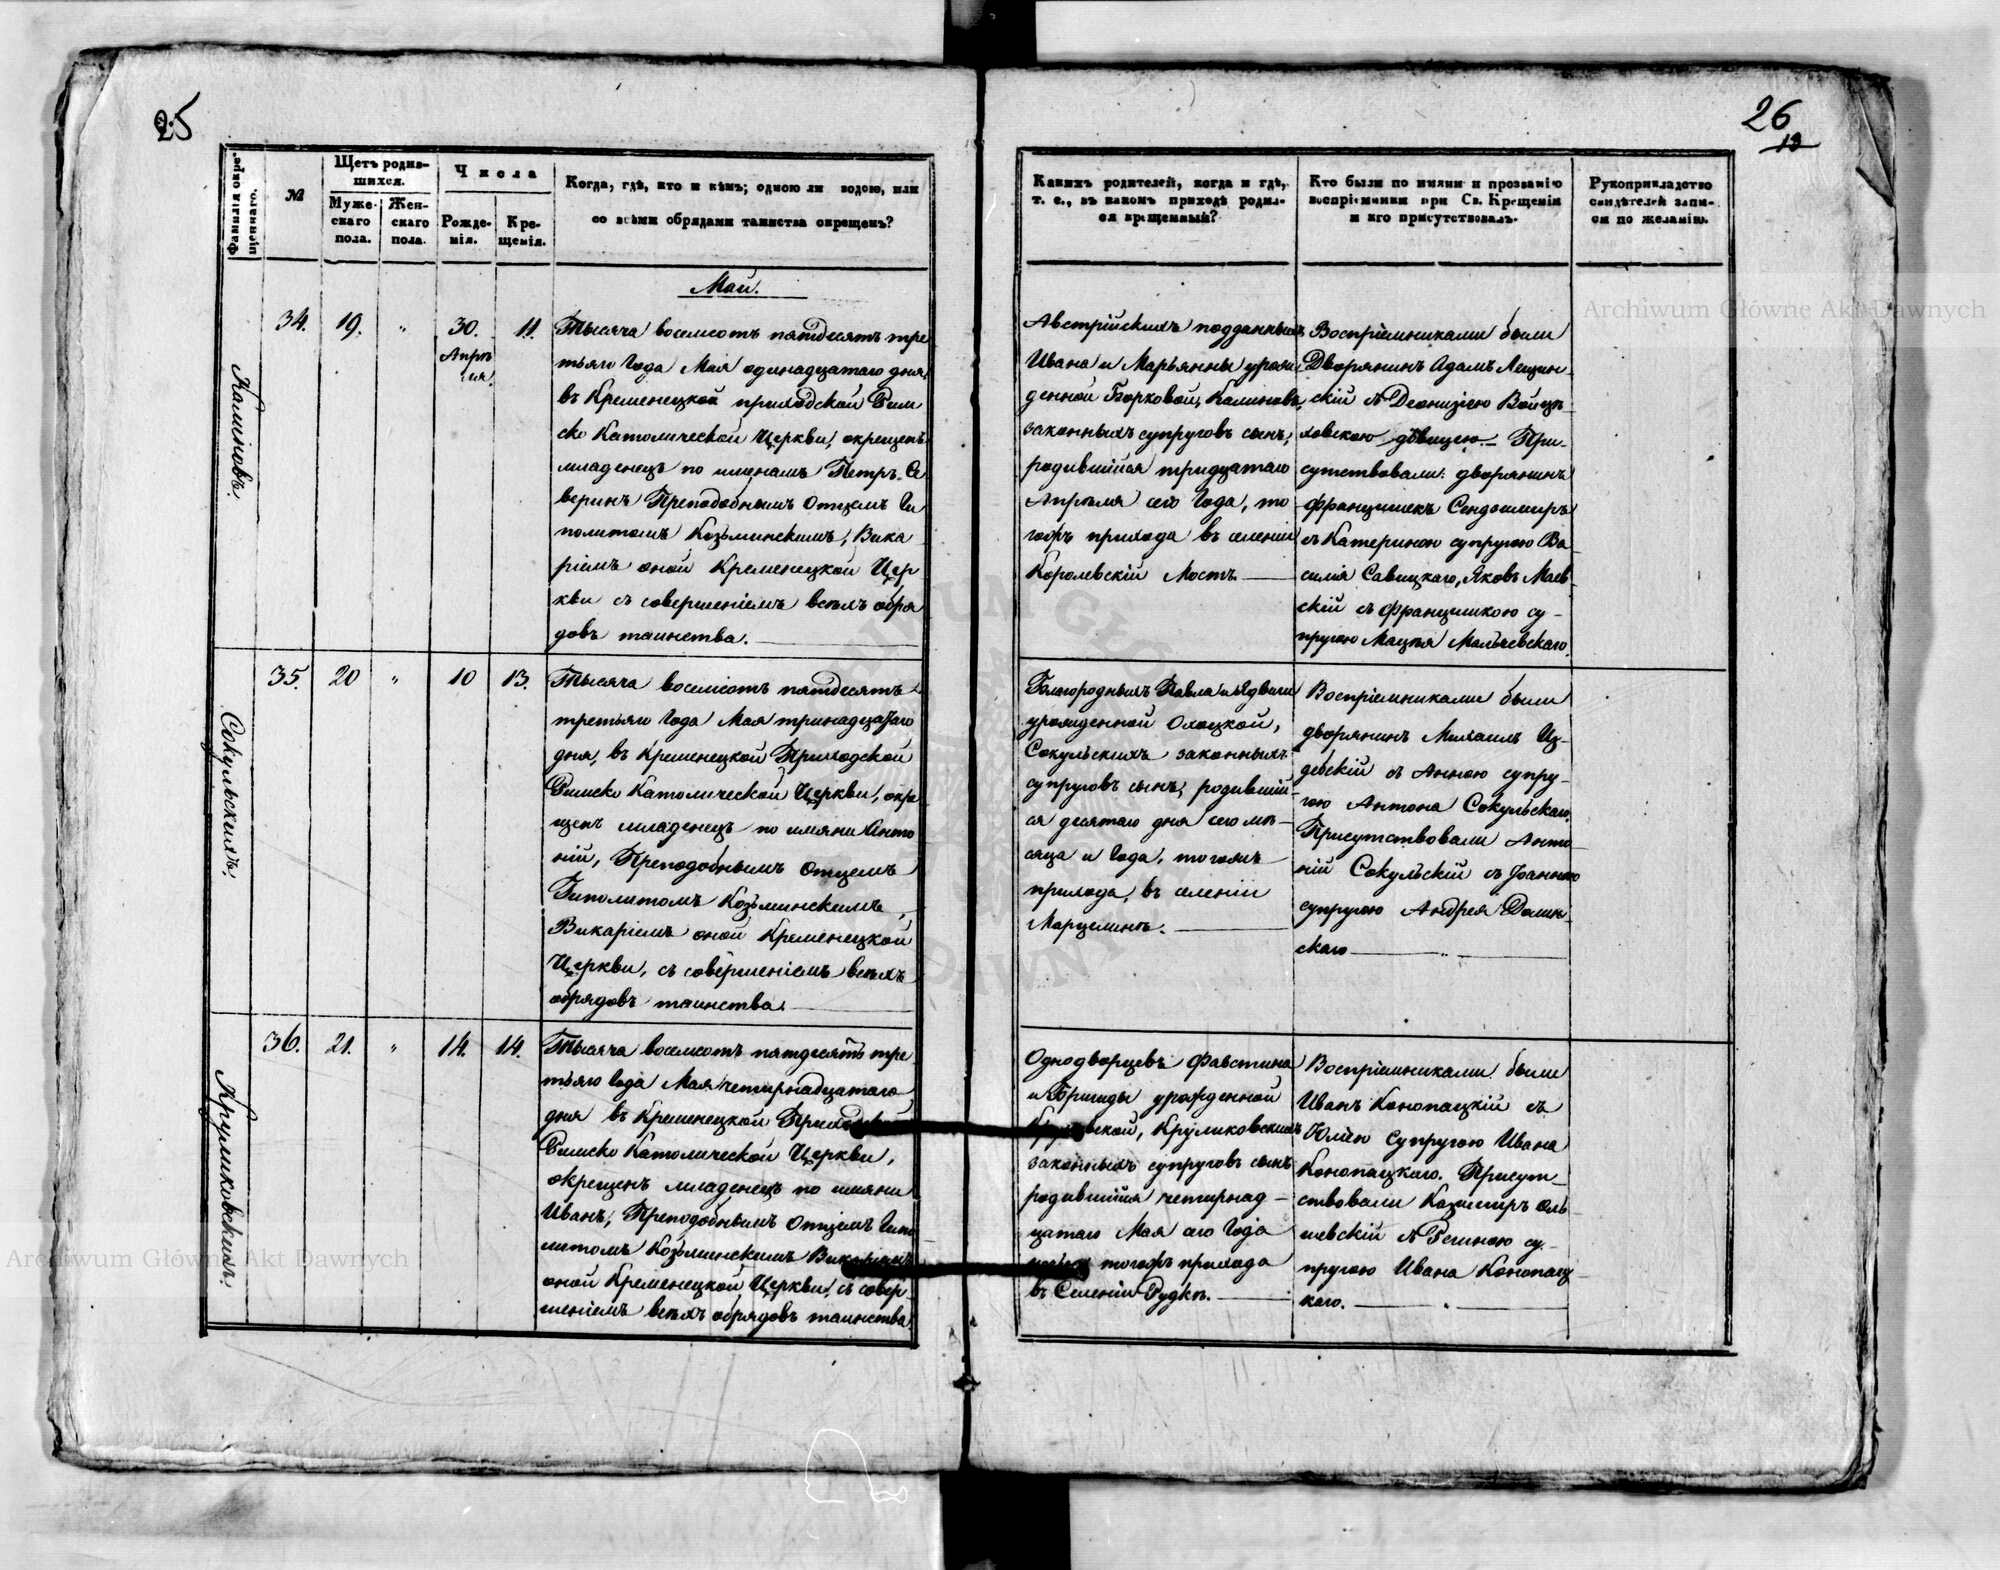 25
Фамилія окре-
щеннаго.
№
Щетъ родив-
шихся.
Муже-
скаго
пола.
Жен-
скаго
пола.
Числа
Рожде-
нія.
Кре-
щенія.
Когда, гдѣ, кто и кѣмъ; одною ли водою, или
со всѣми обрядами таинства окрещенъ?
Май.
Калиновъ.
34.
19.
"
30.
Апрѣ
ля.
11.
Тысяча восемсотъ пятдесятъ тре
тьяго Года Мая одинадцатаго дня,
въ Кременецкой приходской Рим
ско Католической Церкви, окрещенъ
младенецъ по именамъ Петръ-Се
веринъ Преподобнымъ Отцемъ Ги
политомъ Козьминскимъ, Вика
ріемъ оной Кременецкой Цер
кви съ совершеніемъ всѣхъ обря
довъ таинства.
Сокульскихъ.
35.
20
"
10
13.
Тысяча восемсотъ пятдесятъ
третьяго Года Мая тринадцатаго
дня, въ Кременецкой Приходской
Римско Католической Церкви, окре
щенъ младенецъ по имяни Анто
ній, Преподобнымъ Отцемъ
Гиполитомъ Козьминскимъ,
Викаріемъ оной Кременецкой
Церкви, съ совершеніемъ всѣхъ
обрядовъ таинства.
Круликовскихъ.
36.
21.
"
14.
14.
Тысяча восемсотъ пятдесятъ тре
тьяго Года Мая четырнадцатаго
дня въ Кременецкой Приходской
Римско Католической Церкви,
окрещенъ младенецъ по имяни
Иванъ, Преподобнымъ Отцемъ Гипо
литомъ Козьминскимъ Викаріемъ
оной Кременецкой Церкви, съ совер-
шеніемъ всѣхъ обрядовъ таинства.
26
13
Какихъ родителей, когда и гдѣ,
т. е., въ какомъ приходѣ родил-
ся крещенный?
Кто были по имяни и прозванію
воспріемники при Св. Крещеніи
и кто присутствовалъ.
Рукоприкладство
свидѣтелей запи-
си по желанію.
Австрійскихъ подданныхъ
Ивана и Марьянны урож
денной Борковой, Калиновъ,
законныхъ супруговъ сынъ,
родившійся тридцатаго
Апрѣля сего Года, то
гожъ прихода въ селеніи
Королевскій Мостъ.
Воспріемниками были
Дворянинъ Адамъ Лещин-
скій съ Деонизіею Войцѣ-
ховскою дѣвицею. При-
сутствовали: дворянинъ
Францишекъ Сендомиръ
съ Катериною супругою Ва
силія Савицкаго, Яковъ Маев-
скій съ Францишкою су-
пругою Мацѣя Мальчевскаго.
Благородныхъ Павла и Ядвиги
урожденной Охоцкой,
Сокульскихъ законныхъ
супруговъ сынъ, родившій-
ся десятаго дня сего мѣ-
сяца и Года, тогожъ
прихода, въ селеніи
Марцелинъ.
Воспріемниками были
дворянинъ Михаилъ Из-
дебскій съ Анною супру-
гою Антона Сокульскаго.
Присутствовали Анто-
ній Сокульскій съ Іоанною
супругою Андрея Долин-
скаго
Однодворцевъ Фавстина
и Бригиды урожденной
Круликовскихъ
законныхъ супруговъ сынъ
родившійся четырнад-
цатаго Мая сего Года
тогожъ прихода
въ Селеніи Рудкѣ.
Воспріемниками были
Иванъ Конопацкій съ
Юліею супругою Ивана
Конопацкаго. Присут-
ствовали Казимиръ Оль
шевскій съ Региною су-
пругою Ивана Конопац-
каго.
Archiwum Główne Akt Dawnych
Archiwum Główne Akt Dawnych